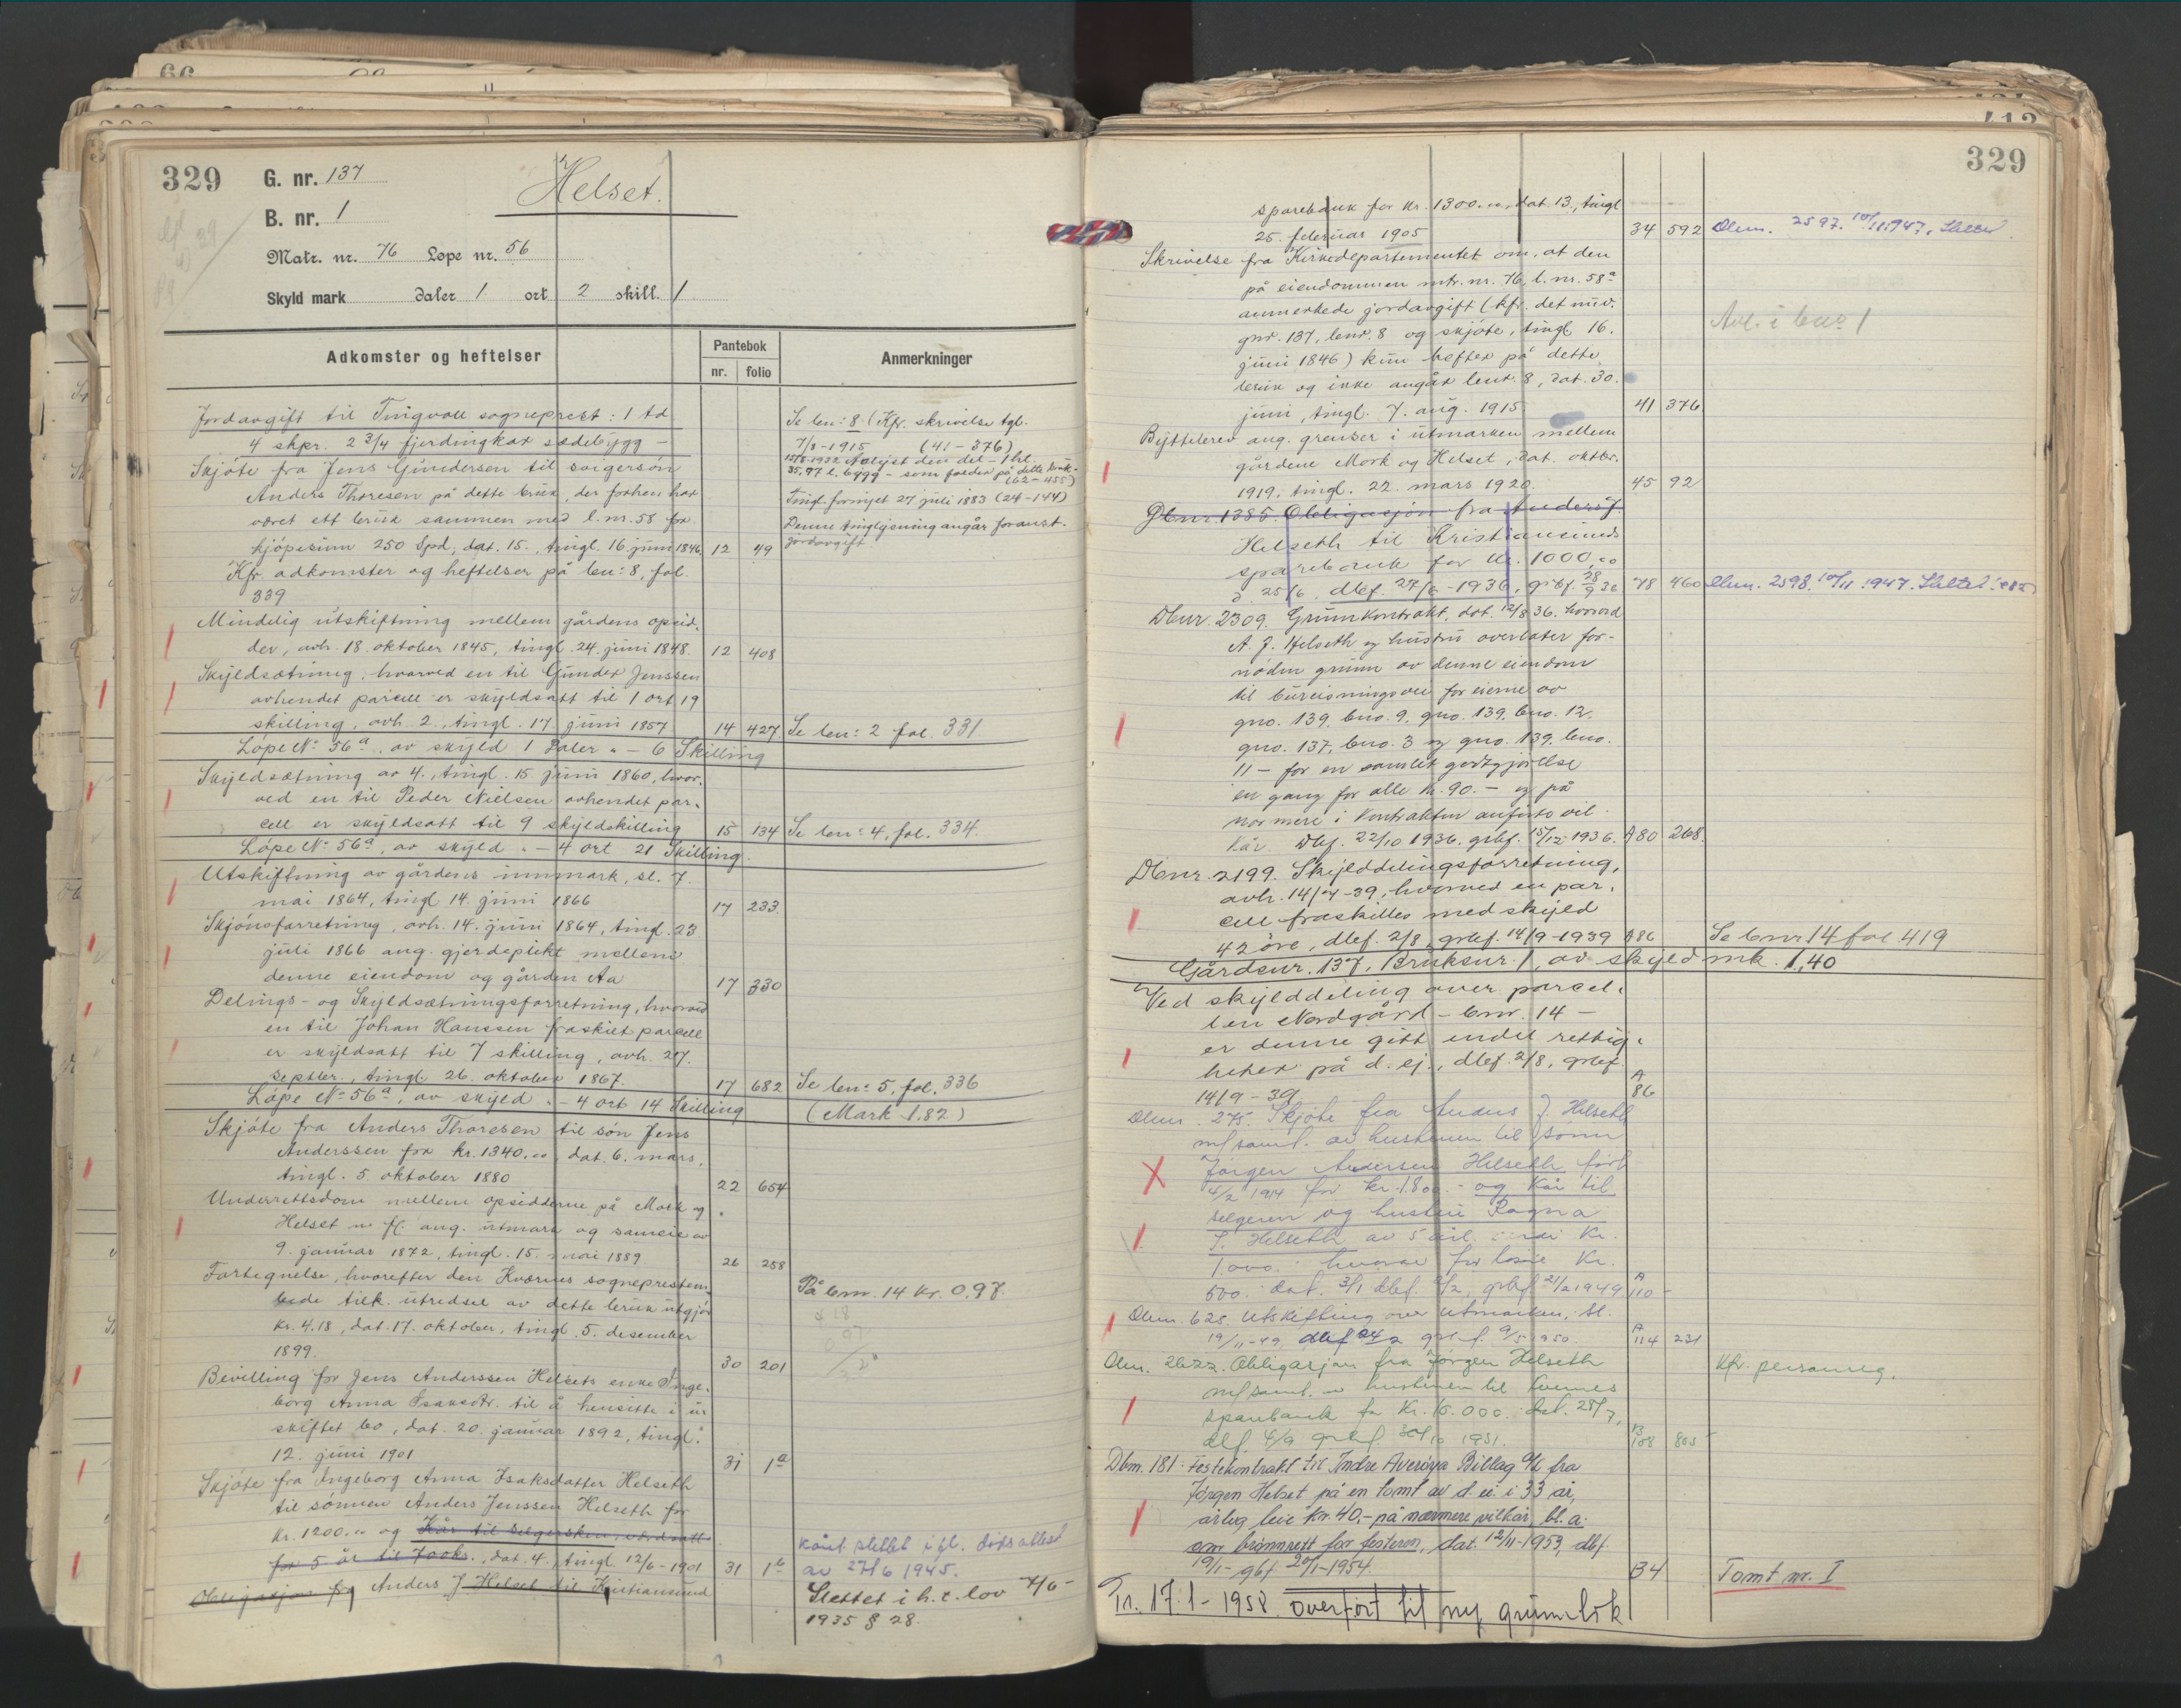 329
G. nr. 137
Helset.
B. nr. 1
Matr. nr. 76 Løpe nr. 56
Skyld mark daler 1 ort 2 skill. 1
Adkomster og heftelser
Pantebok
nr. folio
Anmerkninger
Jordavgift til Tingvoll sogneprest: 1 td
4 skpr. 2 3/4 fjerdingkar sædebygg -
Se bn: 8. (Kfr. skrivelse tgl.
7/8-1915 (41-376)
15/8-1932 Avlyst den del - 1 hl.
35,97 l. bygg - som falder på dette bruk.
(62-455)
Skjøte fra Jens Gundersen til svigersøn
Anders Thoresen på dette bruk, der forhen har
været ett bruk sammen med l.nr. 58 for
kjøpesum 250 Spd, dat. 15., tingl. 16. juni 1846. 12 49
Tingl. fornyet 27 juli 1883 (24-144)
Denne tinglysning angår foranst.
jordavgift.
Kfr. adkomster og heftelser på bn: 8, fol.
339
Mindelig utskiftning mellem gårdens opsid-
der, avh. 18. oktober 1845, tingl. 24. juni 1848. 12 408
Skyldsætning, hvorved en til Gunder Jenssen
avhendet parcell er skyldsatt til 1 ort 19
skilling, avh. 2., tingl. 17 juni 1857 14 427 Se bn: 2 fol. 331
Løpe No 56a, av skyld 1 Daler " - 6 Skilling
Skyldsætning av 4., tingl. 15. juni 1860, hvor-
ved en til Peder Nielsen avhendet par-
cell er skyldsatt til 9 skyldskilling 15 134 Se bn: 4, fol. 334.
Løpe No 56a, av skyld " - 4 ort 21 Skilling.
Utskiftning av gårdens innmark, sl. 7.
mai 1864, tingl. 14. juni 1866 17 233
Skjønsforretning, avh. 14. juni 1864, tingl. 23
juli 1866 ang. gjerdeplikt mellem
denne eiendom og gården Aa 17 330
Delings- og Skyldsætningsforretning, hvorved
en til Johan Hanssen fraskilt parcell
er skyldsatt til 7 skilling, avh. 27.
septbr., tingl. 26. oktober 1867. 17 682 Se bn: 5, fol. 336
Løpe No 56a, av skyld " - 4 ort 14 Skilling (Mark 1.82)
Skjøte fra Anders Thoresen til søn Jens
Anderssen for kr. 1340.00, dat. 6. mars,
tingl. 5 oktober 1880 22 654
Underrettsdom mellem opsidderne på Mork og
Helset m. fl. ang. utmark og sameie av
9. januar 1872, tingl. 15. mai 1889 26 258
Fortegnelse, hvorefter den Kværnes sogneprestem-
bede tilk. utredsel av dette bruk utgjør
kr. 4.18, dat. 17. oktober, tingl. 5. desember
1899. 30 201
På bnr. 14 kr. 0.97.
Bevilling for Jens Anderssen Helsets enke Inge-
borg Anna Isaksdtr. til å hensitte i u-
skiftet bo, dat. 20. januar 1892, tingl.
12. juni 1901 31 1a
Skjøte fra Ingeborg Anna Isaksdatter Helseth
til sønnen Anders Jenssen Helseth for
kr. 1200.00 og Kår til selgersken, verdsatt
for 5 år til 700 kr., dat. 4., tingl. 12/6-1901 31 1b
Kåret slettet ifl. dødsattest
av 27/6 1945.
Obligasjon fra Anders J Helset til Kristiansund
Slettet i h.t. lov 7/6-
1935 § 28.
329
sparebank for kr. 1300.00, dat. 13., tingl
25. februar 1905 34 592 Dbnr. 2597. 10/11 1947. Slettet
Skrivelse fra Kirkedepartementet om, at den
på eiendommen mtr. nr. 76, l. nr. 58a
anmerkede jordavgift (kfr. det nuv.
gnr. 137, bnr. 8 og skjøte, tingl. 16.
juni 1846) kun hefter på dette
bruk og ikke angår bnr. 8, dat. 30.
juni, tingl. 7. aug. 1915 41 376
Avl. i bno 1
Byttebrev ang. grenser i utmarken mellem
gårdene Mork og Helset, dat. oktbr.
1919, tingl. 22. mars 1920. 45 92
Dbnr. 1385. Obligasjon fra Anders J.
Helseth til Kristiansunds
sparebank for kr. 1000,00
d. 25/6. dbf. 27/6-1936, grbf. 28/9 36 78 460 Dbnr. 2598. 10/11 1947. Slettet
Dbnr. 2309. Grunnkontrakt, dat. 12/8 36. hvorved
A. J. Helseth og hustru overlater for-
nøden grunn av denne eiendom
til bureisningsvei for eierne av
gno. 139, bno. 9, gno. 139, bno. 12,
gno. 137, bno. 3 og gno. 139, bno.
11 - for en samlet godtgjørelse
en gang for alle kr. 90.- og på
nærmere i kontrakten anførte vil-
kår. Dbf. 22/10 1936. grbf. 15/12 1936. A80 268.
Dbnr. 2199. Skylddelingsforretning,
avh. 14/7-39, hvorved en par-
cell fraskilles med skyld
42 øre, dbf. 2/8, grbf. 14/9-1939 A86 Se bnr 14 fol 419
Gårdsnr. 137, Bruksnr. 1, av skyld mk. 1,40
Ved skylddeling over parcel-
len Nordgård - bnr. 14 -
er denne gitt endel rettig-
heter på d. ej., dbf. 2/8, grbf.
14/9-39 A 86
Dbnr. 275. Skjøte fra Anders J. Helseth
m/ saml. av hustruen til sønn
Jørgen Andersen Helseth født
4/2 1914 for kr. 1.800.- og Kår til
selgeren og hustru Ragna
J. Helseth av 5 årl. verdi Kr.
1.000.- hvorav for losie Kr.
500.- dat. 3/1 dbf. /2, grbf. 21/2 1949 A 110
Dbnr. 628. Utskifting over utmarken, sl.
19/11-49 dbf 24/2 grbf. 9/5 1950. A 114 231
Dbnr. 2622. Obligasjon fra Jørgen Helseth
m/ saml. av hustruen til Kvernes
sparebank for Kr. 16.000.- dat. 28/7,
dbf. 4/9 grbf. 30/10 1951. B 108 805
Kfr. personreg.
Dbnr. 181. Festekontrakt til Indre Averøya Billag A/L fra
Jørgen Helset på en tomt av d. ei. i 33 år,
årleg leie kr. 40,- på nærmere vilkår, bl.a.
om brønnrett for festeren, dat. 12/11-1953, dbf.
19/1- gbf. 20/1-1954. B4 Tomt nr. I
Tr. 17.1-1958. overført til ny grunnbok